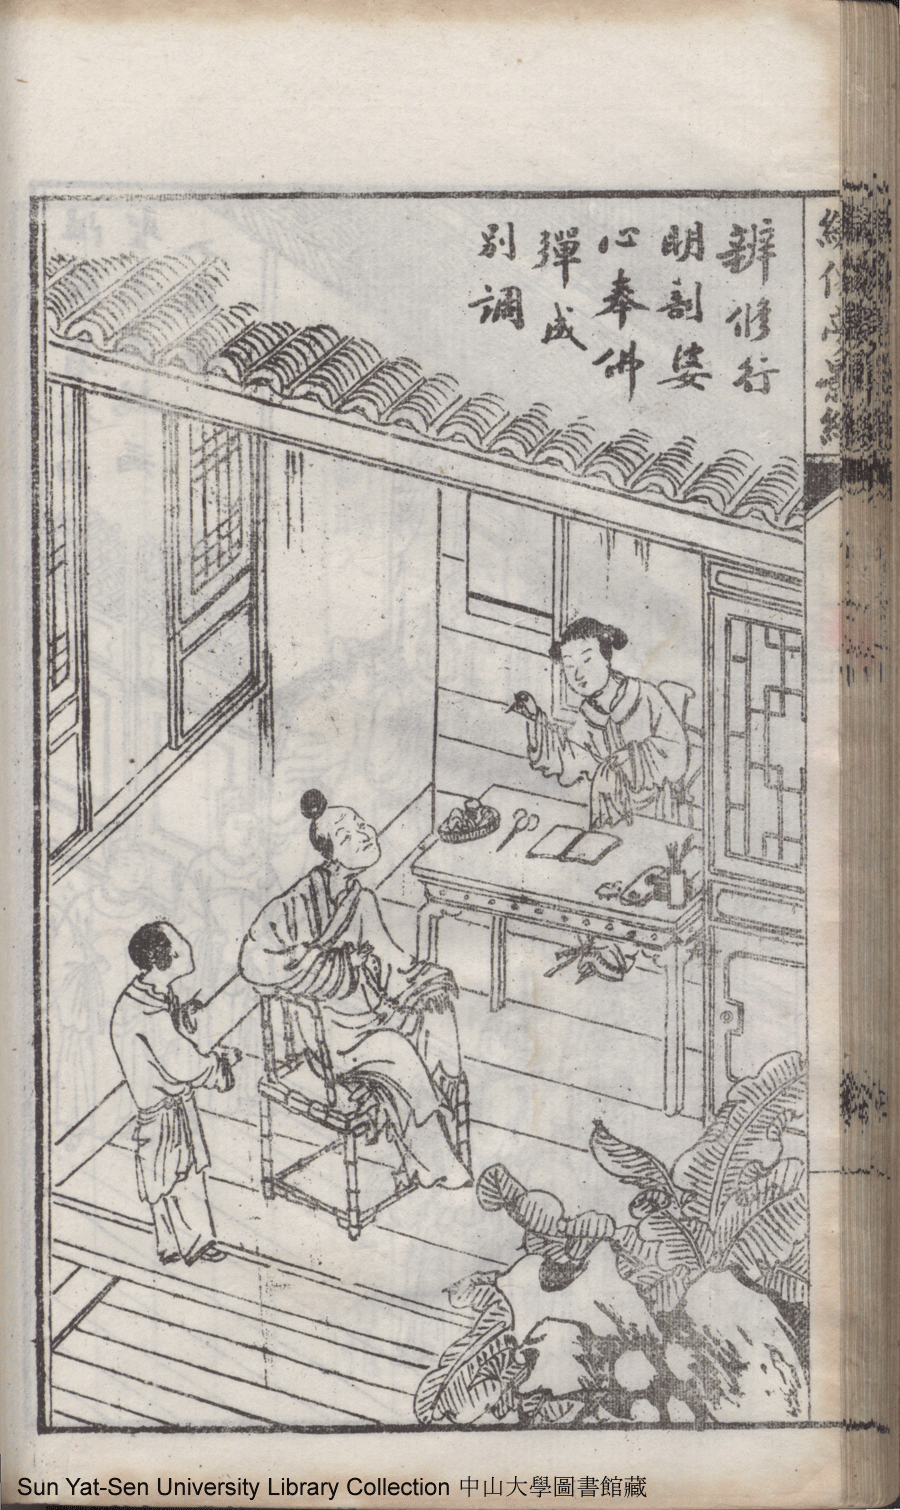 辨修行
明剖婆
心奉佛
彈成
別調
Sun Yat-Sen University Library Collection 中山大學圖書館藏